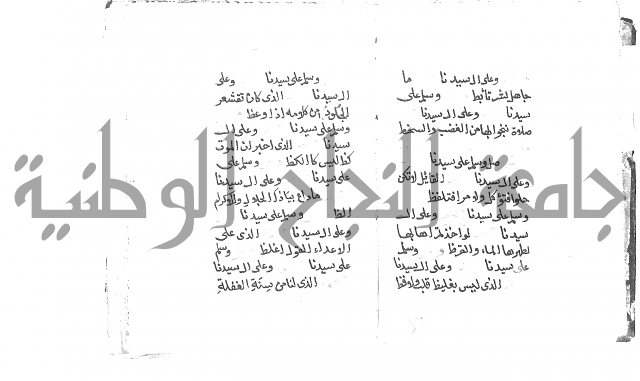 وعلى ال سيدنا ما
جاهل بشر نابط وسلم على
سيدنا وعلى ال سيدنا
صلاة ننجوا بها من الغضب والسخط
صل وسلم على سيدنا
وعلى ال سيدنا القائل
وسلم على سيدنا وعلى ال
سيدنا لو اخذت اهابها
يطهرها الماء والقرظ وسلم
على سيدنا وعلى ال سيدنا
الذى ليس بغليظ قلب ولا فظ
وسلم على سيدنا وعلى
ال سيدنا الذى كانت تقشعر
الجلود من كلامه اذا وعظ
وسلم على سيدنا وعلى ال
سيدنا الذى اخبر ان الموت
كظ ليس كا الكظ وسلم على
على سيدنا وعلى ال سيدنا
الظا وسلم على سيدنا
وعلى ال سيدنا الذى على
الاعداء القول اغلظ وسلم
على سيدنا وعلى ال سيدنا
الذى لنا من سنة الغفلة
جامعة النجاح الوطنية